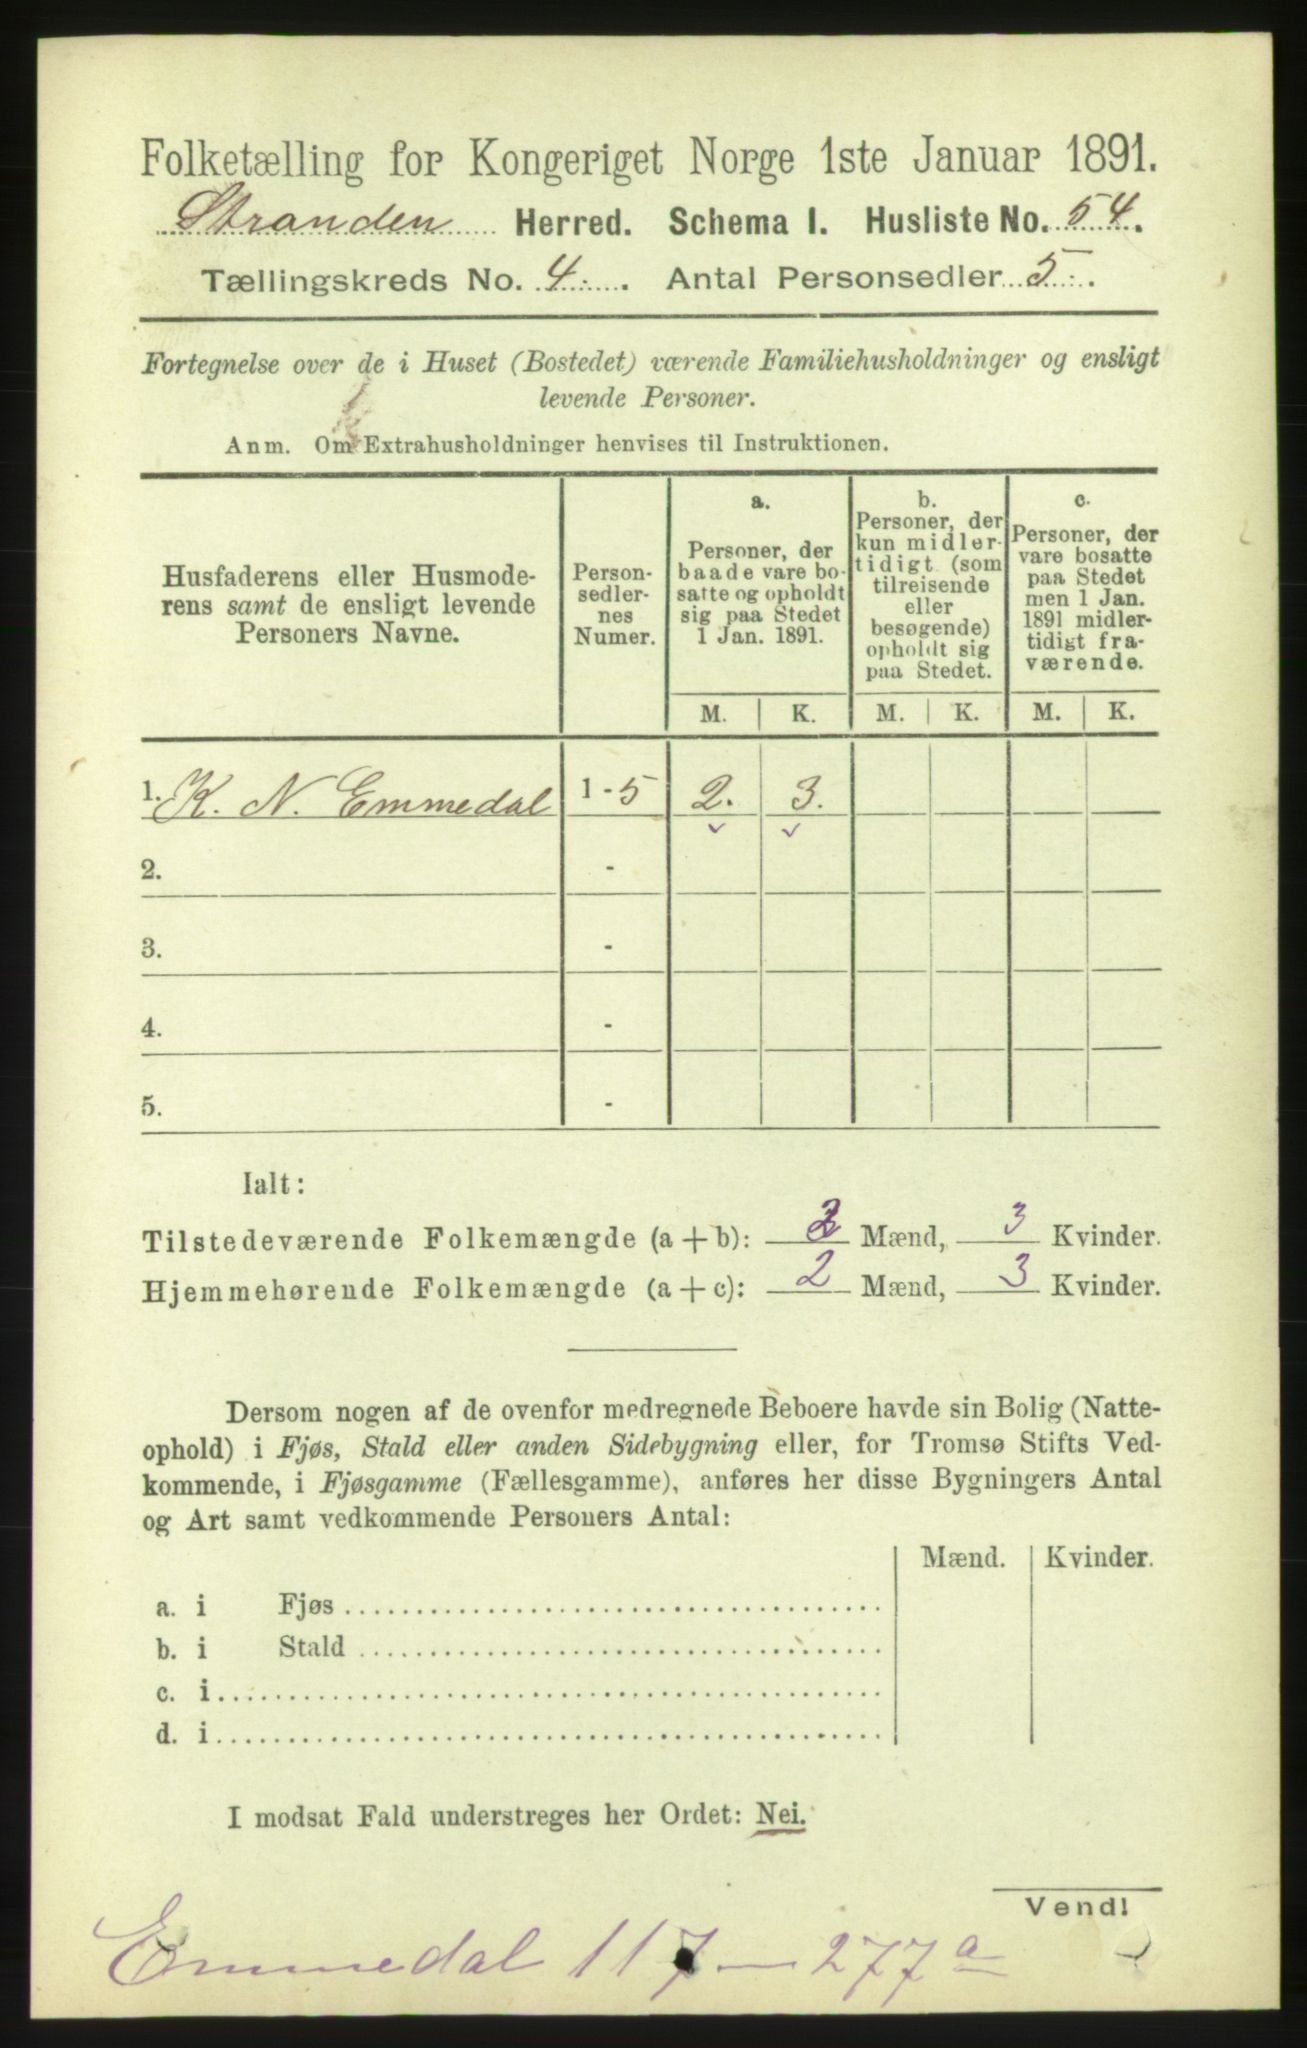 Folketælling for Kongeriget Norge 1ste Januar 1891.
Stranden Herred. Schema I. Husliste No. 54.
Tællingskreds No. 4. Antal Personsedler 5.
Fortegnelse over de i Huset (Bostedet) værende Familiehusholdninger og ensligt
levende Personer.
Anm. Om Extrahusholdninger henvises til Instruktionen.
Husfaderens eller Husmode-
rens samt de ensligt levende
Personers Navne.
Person-
sedler-
nes
Numer.
a.
Personer, der
baade vare bo-
satte og opholdt
sig paa Stedet
1 Jan. 1891.
b.
Personer, der
kun midler-
tidigt (som
tilreisende
eller
besøgende)
opholdt sig
paa Stedet.
c.
Personer, der
vare bosatte
paa Stedet
men 1 Jan.
1891 midler-
tidigt fra-
værende.
M. K. M. K. M. K.
1. K. N. Emmedal 1 - 5 2. 3.
2. -
3. -
4. -
5. -
Ialt:
Tilstedeværende Folkemængde (a + b): 2 Mænd, 3 Kvinder.
Hjemmehørende Folkemængde (a + c): 2 Mænd, 3 Kvinder.
Dersom nogen af de ovenfor medregnede Beboere havde sin Bolig (Natte-
ophold) i Fjøs, Stald eller anden Sidebygning eller, for Tromsø Stifts Ved-
kommende, i Fjøsgamme (Fællesgamme), anføres her disse Bygningers Antal
og Art samt vedkommende Personers Antal:
Mænd. Kvinder.
a. i Fjøs
b. i Stald
c. i
d. i
I modsat Fald understreges her Ordet: Nei.
Vend!
Emmedal 117 — 277a